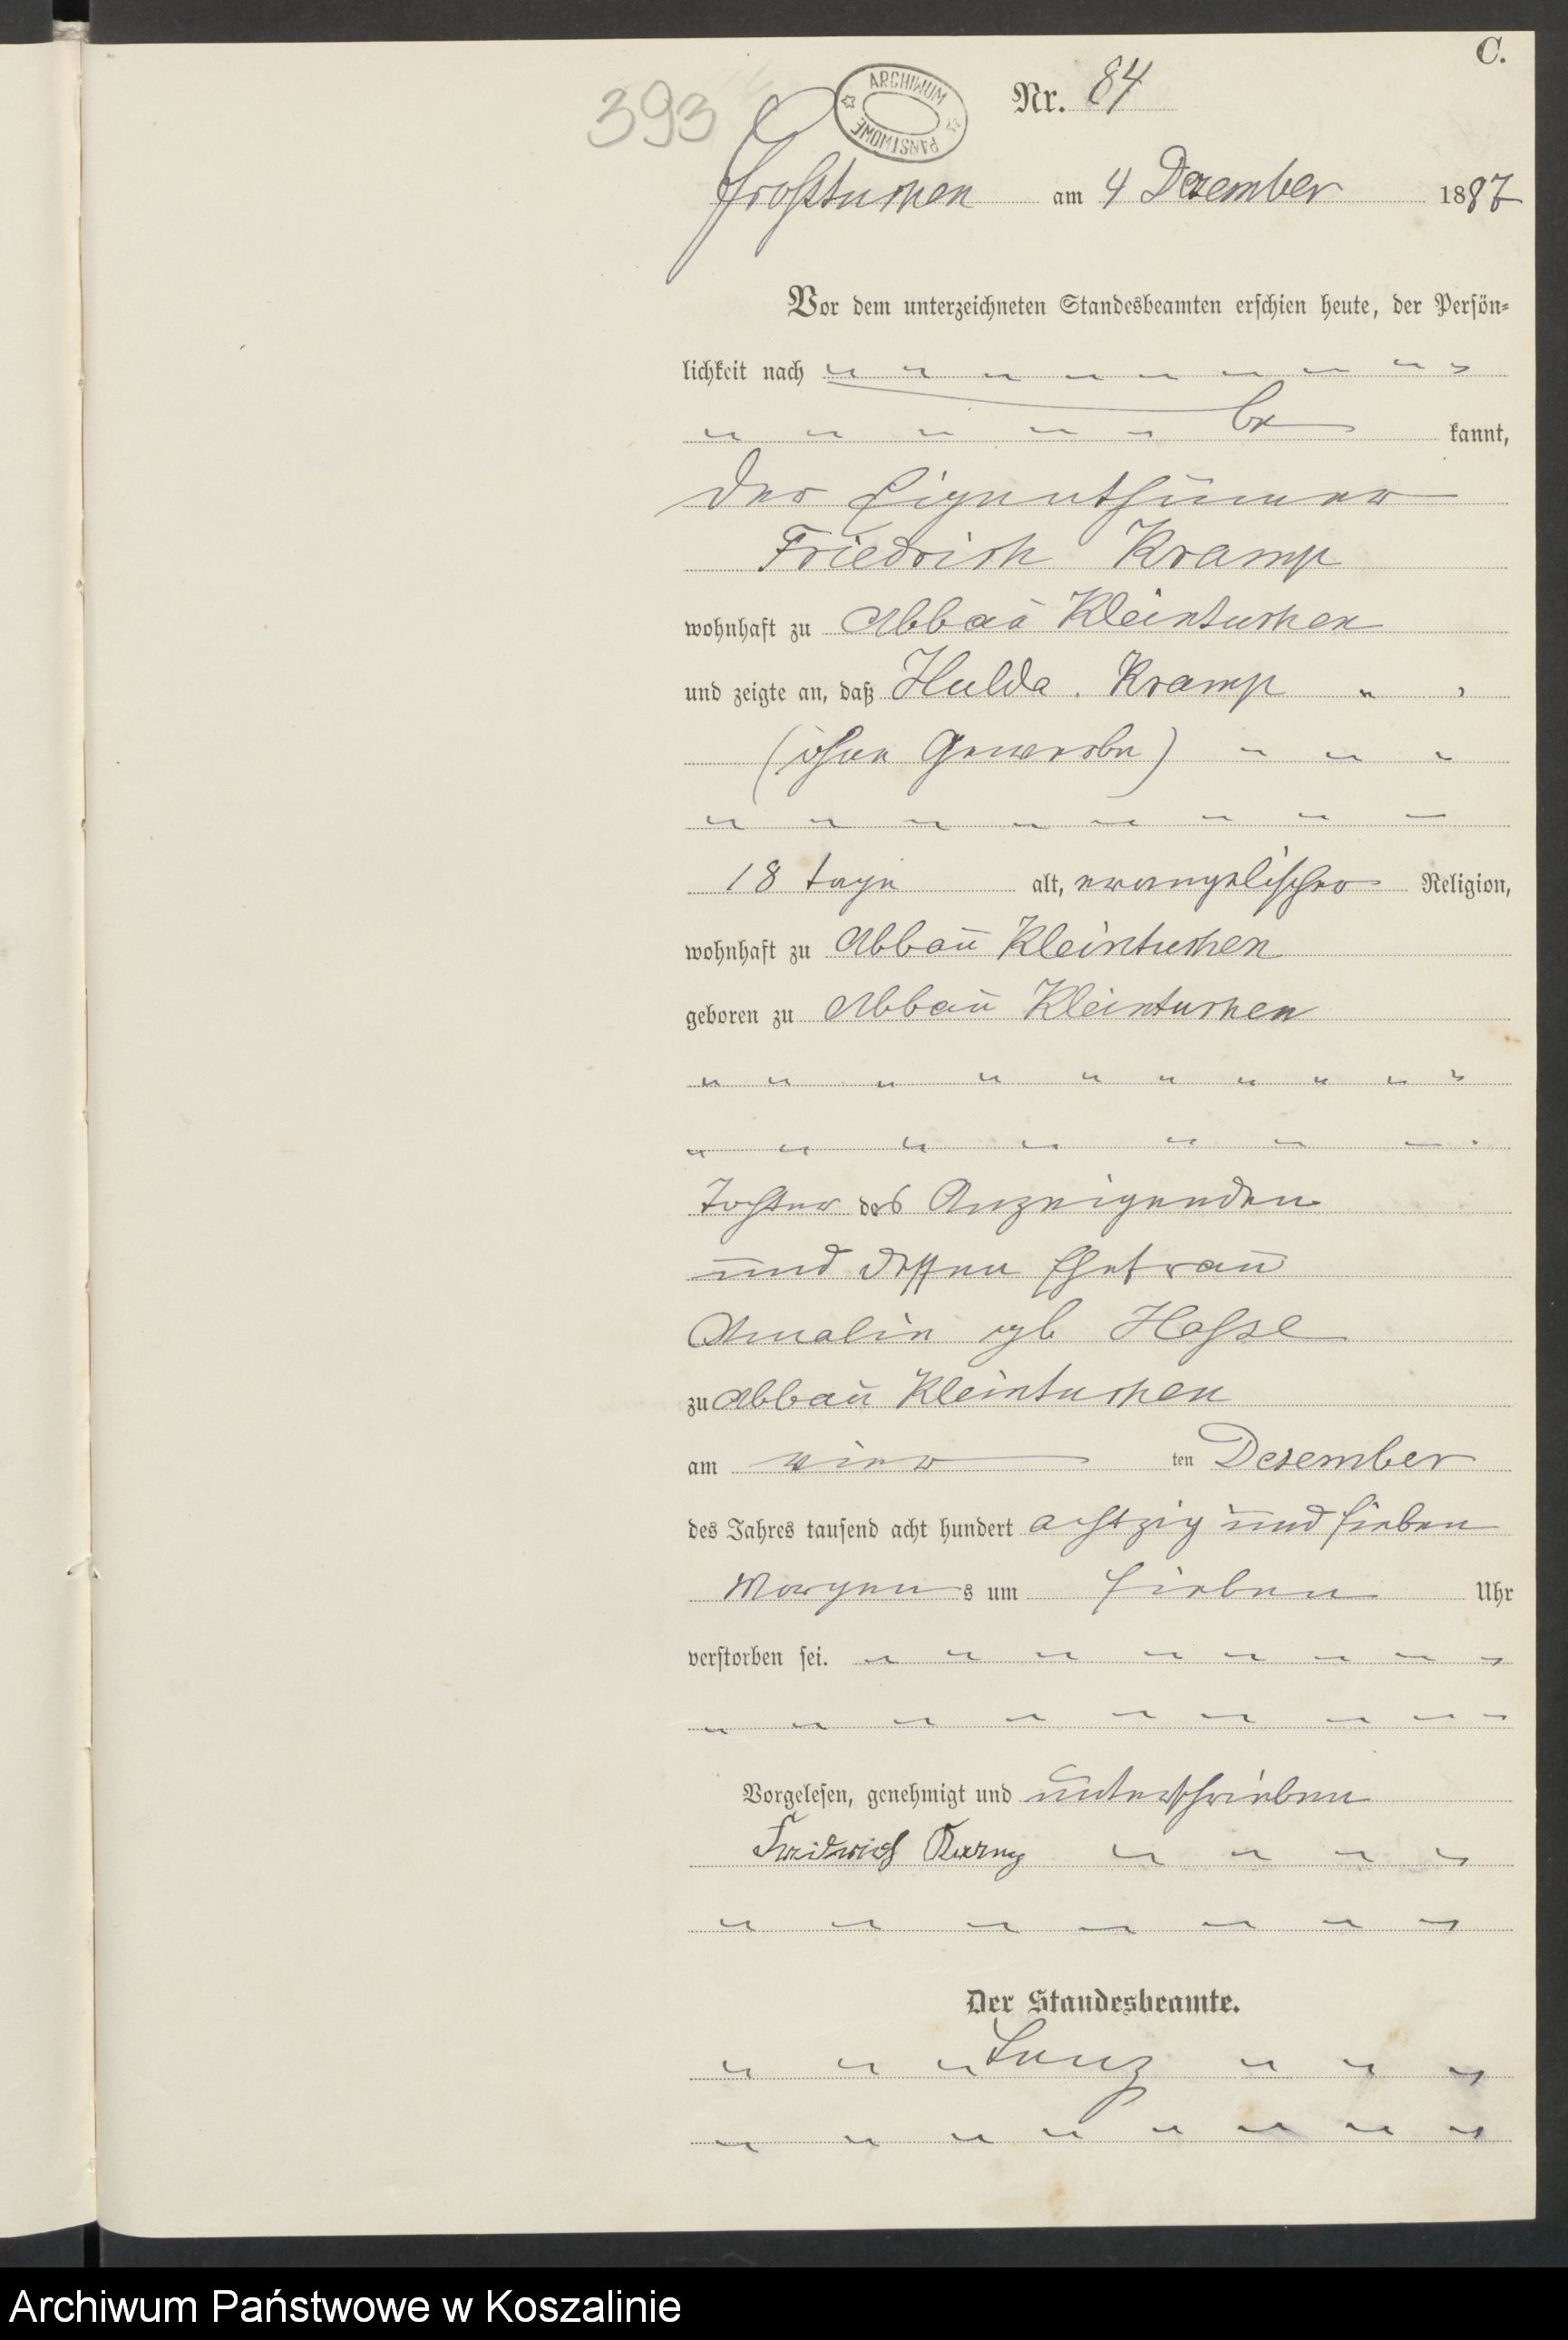 C.
393
ARCHIWUM PAŃSTWOWE
Nr. 84
Großtuchen am 4 Dezember 1887
Vor dem unterzeichneten Standesbeamten erschien heute, der Persön=
lichkeit nach
be kannt,
der Eigenthümer
Friedrich Kramp
wohnhaft zu Abbau Kleintuchen
und zeigte an, daß Hulda Kramp
(ohne Gewerbe)
18 tage alt, evangelischer Religion,
wohnhaft zu Abbau Kleintuchen
geboren zu Abbau Kleintuchen
Tochter des Anzeigenden
und dessen Ehefrau
Amalie geb
zu Abbau Kleintuchen
am vier ten Dezember
des Jahres tausend acht hundert achtzig und sieben
Morgens um sieben Uhr
verstorben sei.
Vorgelesen, genehmigt und unterschrieben
Der Standesbeamte.
Archiwum Państwowe w Koszalinie